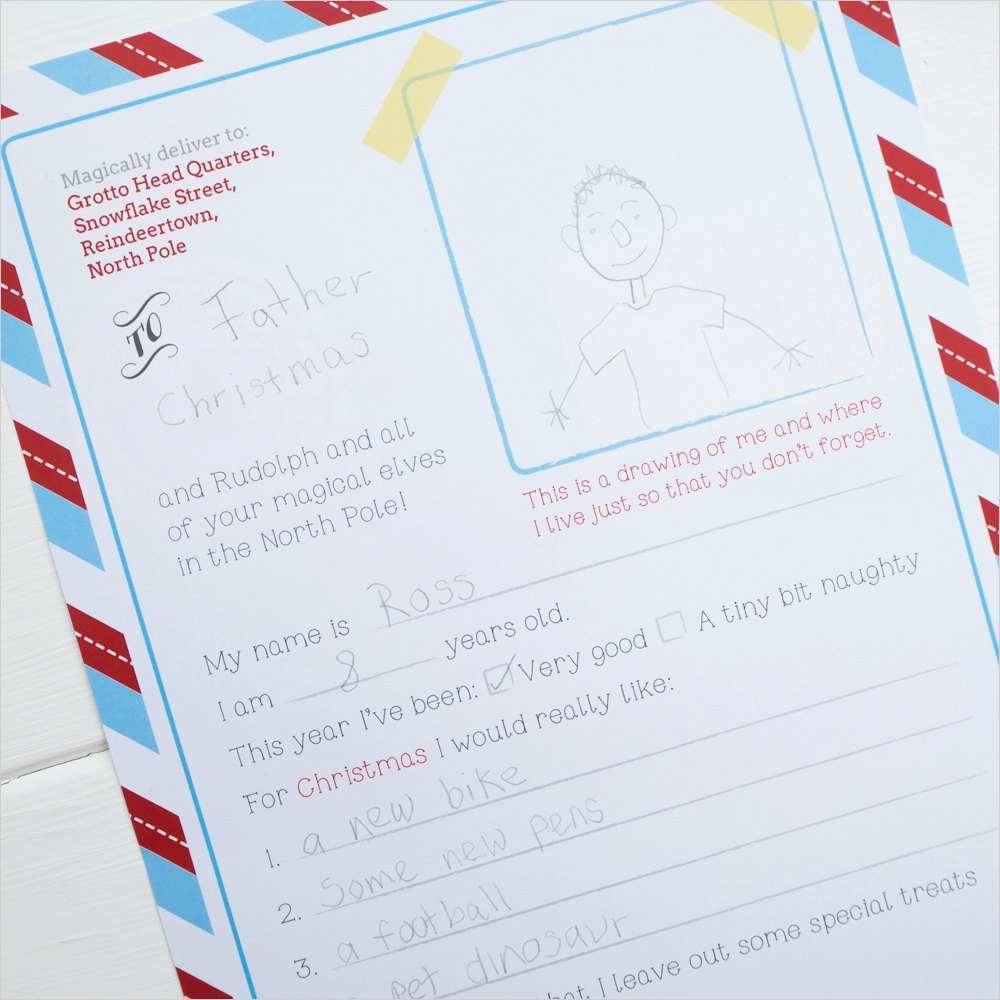 Magically deliver to:
Grotto Head Quarters,
Snowflake Street,
Reindeertown,
North Pole
TO Father
Christmas
and Rudolph and all
of your magical elves
in the North Pole!
This is a drawing of me and where
I live just so that you don't forget.
My name is Ross
I am 8 years old.
This year I've been: Very good A tiny bit naughty
For Christmas I would really like:
1. a new bike
2. Some new pens
3. a football
pet dinosaur
I leave out some special treats